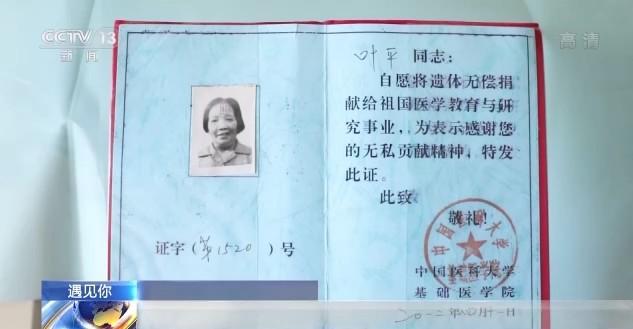 CCTV 13
新闻
高清
叶平 同志：
自愿将遗体无偿捐
献给祖国医学教育与研
究事业，为表示感谢您
的无私贡献精神，特发
此证。
此致
敬礼！
证字（第1520 ）号
中国医科大学
基础医学院
遇见你